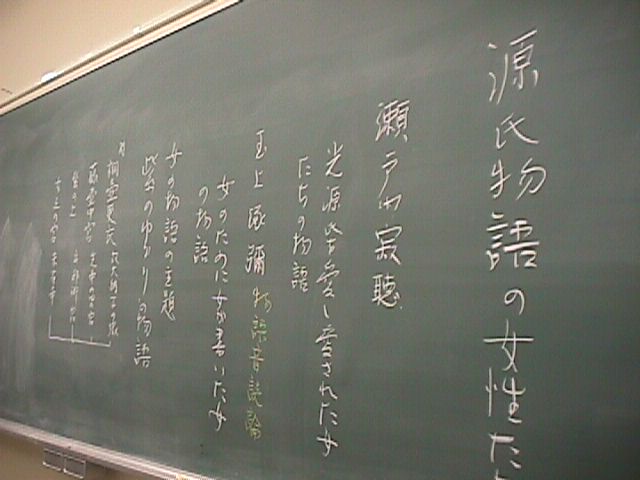 源氏物語の女性た
瀬戸内寂聴
光源氏を愛し愛された女
たちの物語
玉上琢彌 物語音読論
女のために女が書いた女
の物語
女の物語の主題
紫のゆかり物語
桐壺更衣
藤壺中宮
紫の上
女三の宮